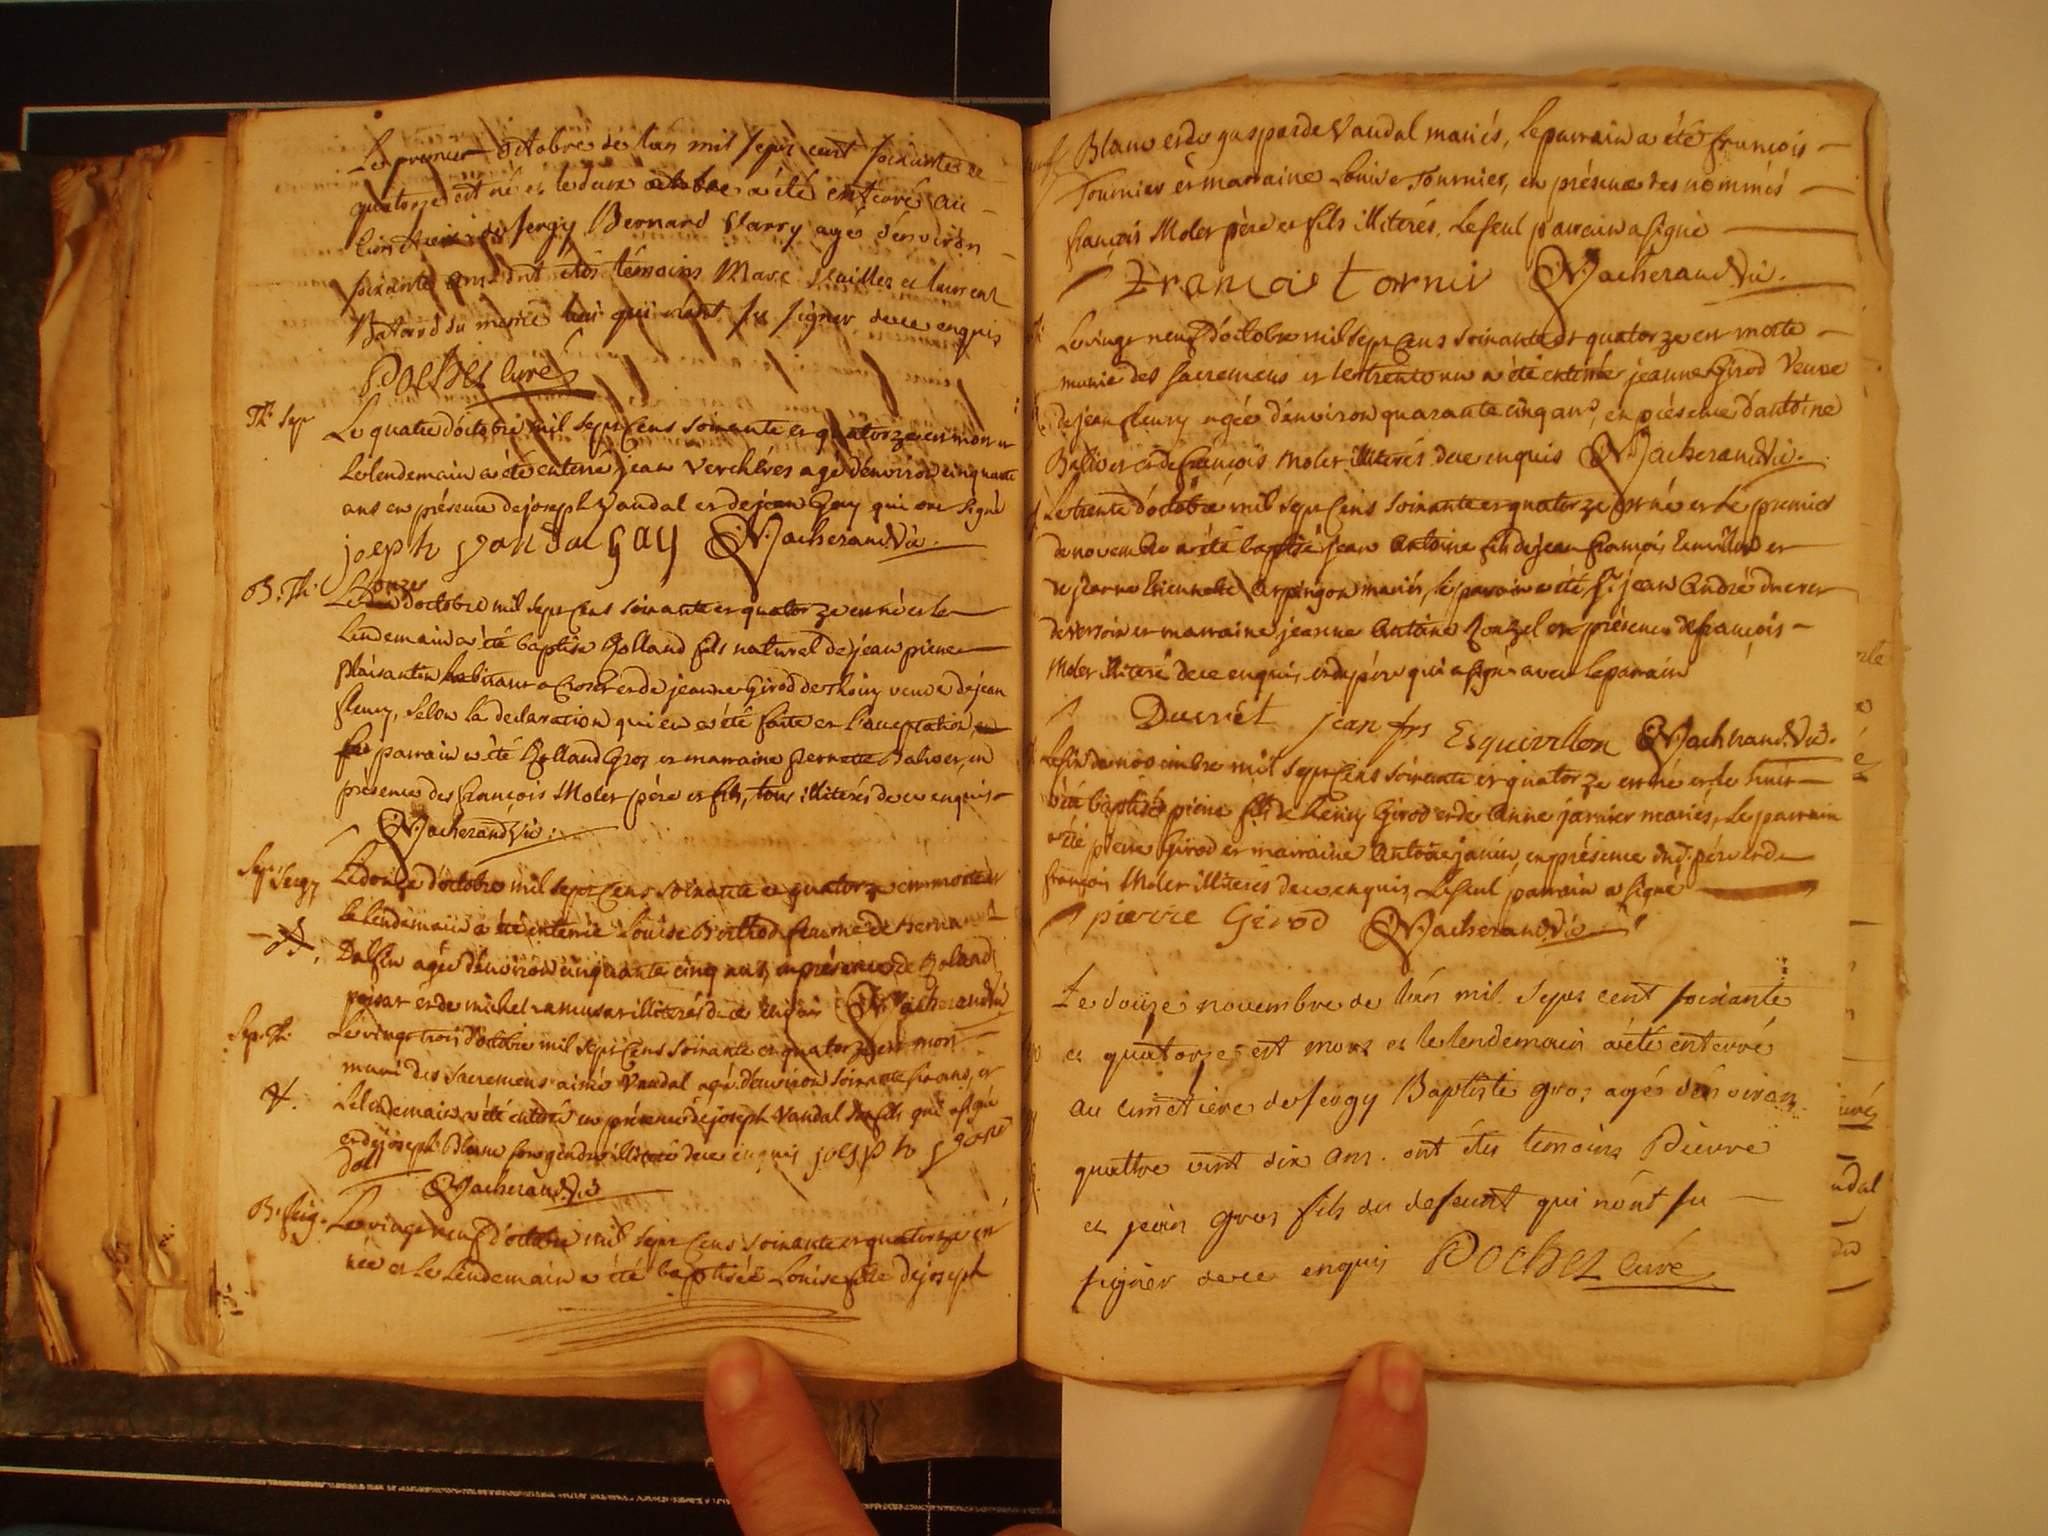 Le premier octobre de l'an mil sept cent soixante et
quatorze est né et le deux octobre a été enterré au
cimetiere de Sergy Bernard Varry agé d'environ
soixante ans ont étés témoins Marc et laurent
Batard du meme qui n'ont su signer de ce enquis
Pochet curé
Th. Sep
Le quatre d'octobre mil sept cens soixante et quatorze est mort et
le lendemain a été enterré jean Verchères agé d'environ cinquante
ans en présence de joseph Vandal et de jean Gay qui ont signé
joseph vandal gay N. Macherand Vic.
B. Th.
Le onze d'octobre mil sept cens soixante et quatorze est né et le
lendemain a été baptisé Rolland fils naturel de jean pierre
plaisantin habitant a et de jeanne Girod de Thoiry veuve de jean
fleury, selon la declaration qui en a été faite et l'acceptation
parrain a été Rolland Gros et marraine pernette Balivet, en
présence des françois Moler père et fils, tous illiterés de ce enquis
N. Macherand Vic.
Sep. Sergy
Le douze d'octobre mil sept cens soixante et quatorze est morte et
le lendemain a été enterrée Louise Berthod femme de Bernard
Dalfin agée d'environ cinquante cinq ans, en présence de Roland
poisat et de michel ramusat illiterés de ce enquis N. Macherand Vic
Sep. Th.
Le vingt trois d'octobre mil sept cens soixante et quatorze est mort
muni des sacremens aimé Vandal agé d'environ soixante ans, et
le lendemain a été enterré en présence de joseph Vandal son fils qui a signé
et de joseph Blanc son gendre illiteré de ce enquis joseph van
dal N. Macherand Vic
B. Serg.
Le vingt neuf d'octobre mil sept cens soixante et quatorze est
née et le lendemain a été baptisée Louise fille de joseph
Blanc et de gasparde Vandal mariés, le parrain a été françois
Tournier et marraine Louise Tournier, en présence des nommés
françois Moler père et fils illiterés, le seul parrain a signé
Francois tornier N. Macherand Vic.
Le vingt neuf d'octobre mil sept cens soixante et quatorze est morte
munie des sacremens et le trente un a été enterrée jeanne Girod veuve
de jean fleury agée d'environ quarante cinq ans, en présence d'antoine
Balivet et de françois Moler illiterés de ce enquis N. Macherand Vic.
Le trente d'octobre mil sept cens soixante et quatorze est né et le premier
de novembre a été baptisé jean antoine fils de jean françois et
de jeanne Etiennette arpingon mariés, le parrain a été Sr. jean andré ducret
de versoix et marraine jeanne antoine en présence de françois
Moler illiteré de ce enquis, et du père qui a signé avec le parrain
Ducrêt jean frs Esquivillon N. Macherand Vic.
Le six de novembre mil sept cens soixante et quatorze est né et le huit
a été baptisé pierre fils de Remy Girod et de anne janier mariés, le parrain
a été pierre Girod et marraine antoine janin, en présence dud. père et de
françois Moler illiterés de ce enquis, le seul parrain a signé
pierre Girod N. Macherand Vic
Le douze novembre de l'an mil sept cent soixante
et quatorze est mort et le lendemain a été enterré
au cimetiere de sergy Baptiste gros agés d'environ
quattre vint dix ans. ont étes temoins Pierre
et jean gros fils du defeunt qui n'ont su
signer de ce enquis Pochet curé